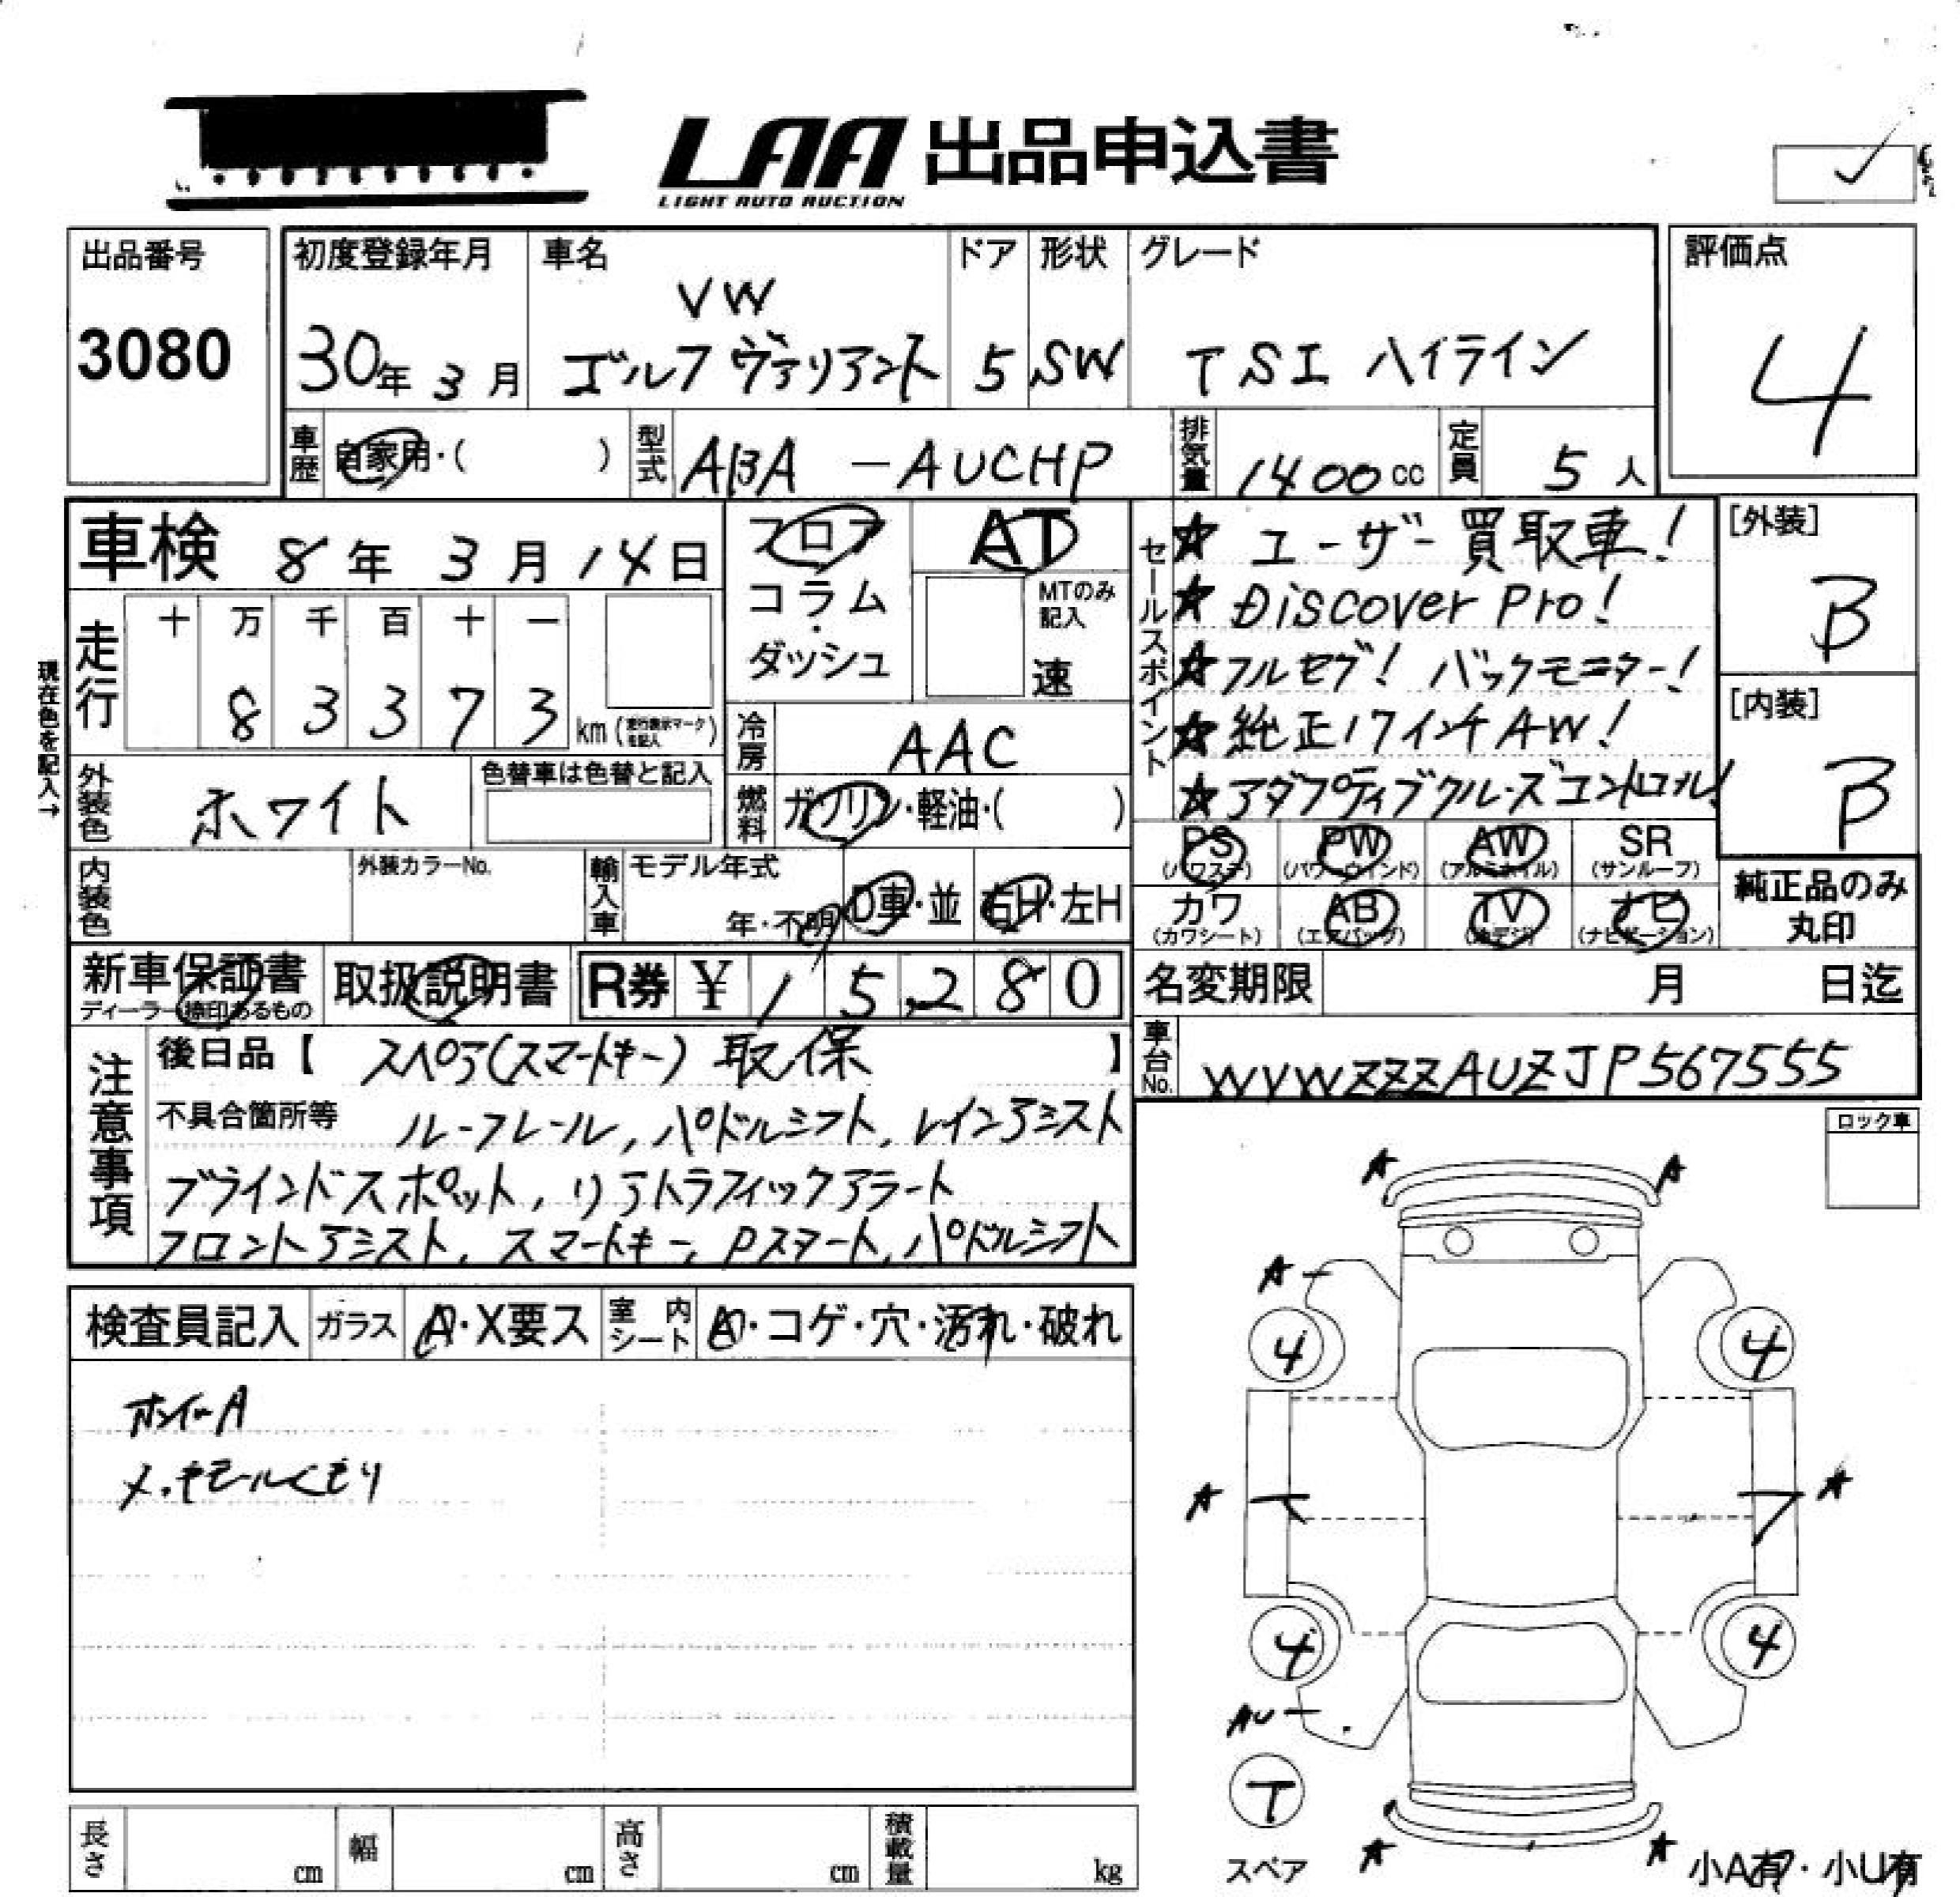 LAA 出品申込書
LIGHT AUTO AUCTION
出品番号 初度登録年月 車名 ドア 形状 グレード 評価点
3080 30年 3月 VW ゴルフ ヴァリアント 5 SW TSI ハイライン 4
車歴 自家用・( ) 型式 ABA - AUCHP 排気量 1400cc 定員 5人
車検 8年 3月 14日
フロア・コラム・ダッシュ
AT
MTのみ記入
速
セールスポイント
★ ユーザー買取車!
★ Discover Pro!
★ フルセグ! バックモニター!
★ 純正17インチAW!
★ アダプティブクルーズコントロール!
[外装]
B
[内装]
B
現在色を記入→
走行 十 万 千 百 十 一
8 3 3 7 3 km (走行表示マークを記入)
冷房 AAC
外装色 ホワイト 色替車は色替と記入
燃料 ガソリン・軽油・( )
内装色 外装カラーNo. 輸入車 モデル年式 年・不明 D車・並 右H・左H
PS (パワステ) PW (パワーウインド) AW (アルミホイル) SR (サンルーフ)
カワ (カワシート) AB (エアバッグ) TV (地デジ) ナビ (ナビゲーション)
純正品のみ丸印
新車保証書 ディーラー捺印あるもの 取扱説明書 R券 ¥ 15,280
名変期限 月 日迄
車台No. WVWZZZAUZJP567555
注意事項
後日品【 スペア(スマートキー) 取保 】
不具合箇所等 ルーフレール, パドルシフト, レインアシスト
ブラインドスポット, リアトラフィックアラート
フロントアシスト, スマートキー, Pスタート, パドルシフト
ロック車
検査員記入 ガラス A・X要ス 室内シート A・コゲ・穴・汚れ・破れ
ホイールA
メッキモールくもり
A A
A
4 4
A A
4 4
AU
T
スペア
A A
小A有・小U有
長さ cm 幅 cm 高さ cm 積載量 kg